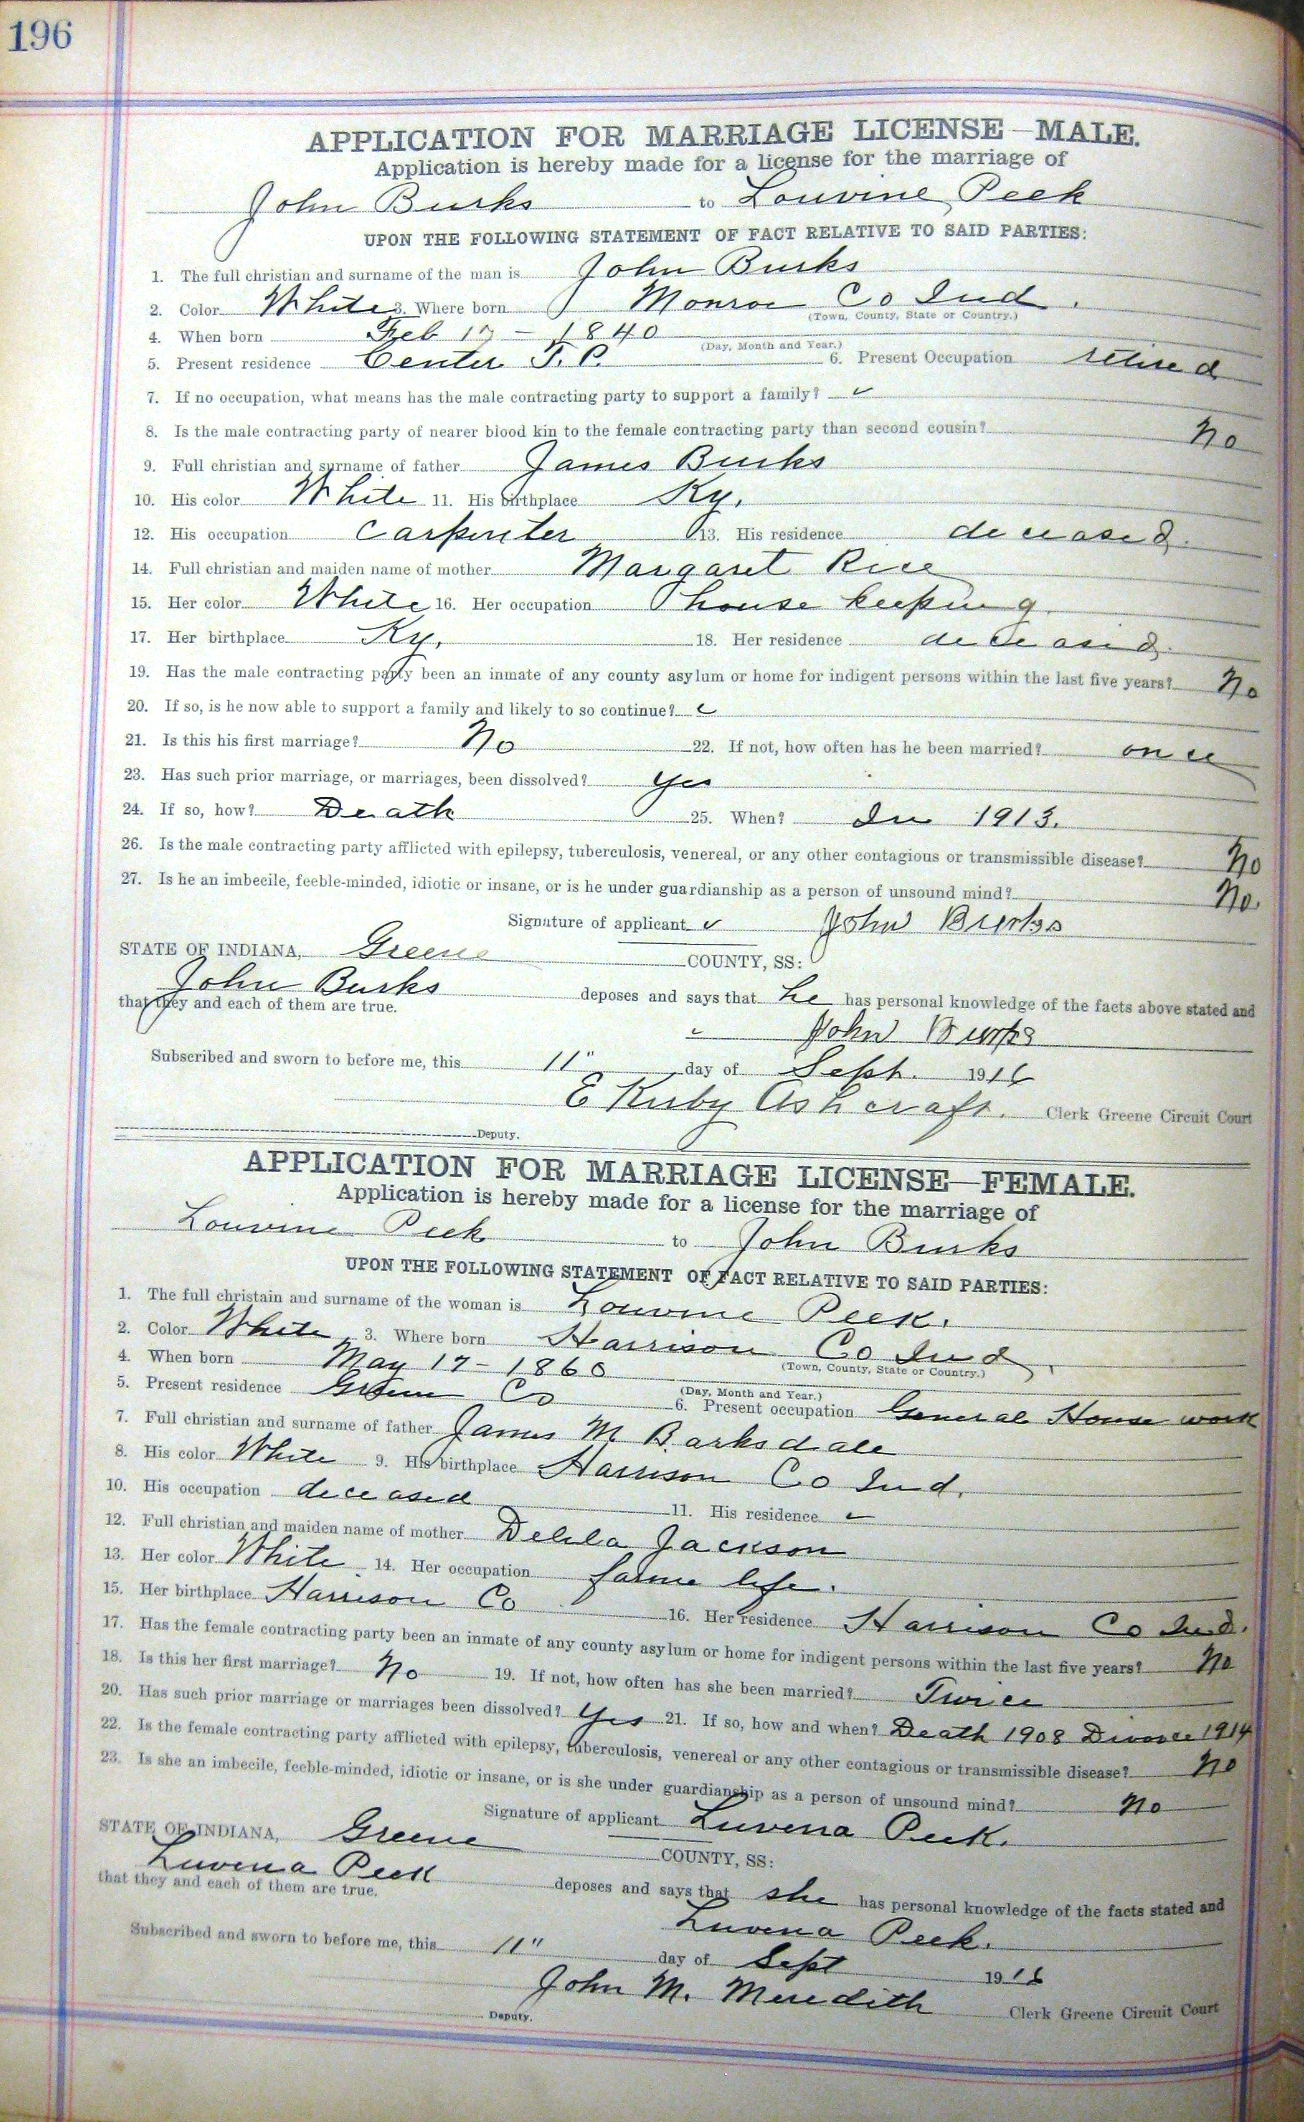 196
APPLICATION FOR MARRIAGE LICENSE—MALE.
Application is hereby made for a license for the marriage of
John Burks to Louvine Peek
UPON THE FOLLOWING STATEMENT OF FACT RELATIVE TO SAID PARTIES:
1. The full christian and surname of the man is John Burks
2. Color White 3. Where born Monroe Co Ind.
(Town, County, State or Country.)
4. When born Feb 17 - 1840
(Day, Month and Year.)
5. Present residence Center T.P. 6. Present Occupation retired
7. If no occupation, what means has the male contracting party to support a family? ✓
8. Is the male contracting party of nearer blood kin to the female contracting party than second cousin? No
9. Full christian and surname of father James Burks
10. His color White 11. His birthplace Ky.
12. His occupation Carpenter 13. His residence deceased.
14. Full christian and maiden name of mother Margaret Rice
15. Her color White 16. Her occupation house keeping.
17. Her birthplace Ky. 18. Her residence deceased.
19. Has the male contracting party been an inmate of any county asylum or home for indigent persons within the last five years? No
20. If so, is he now able to support a family and likely to so continue? ✓
21. Is this his first marriage? No 22. If not, how often has he been married? once
23. Has such prior marriage, or marriages, been dissolved? yes
24. If so, how? Death 25. When? In 1913.
26. Is the male contracting party afflicted with epilepsy, tuberculosis, venereal, or any other contagious or transmissible disease? No
27. Is he an imbecile, feeble-minded, idiotic or insane, or is he under guardianship as a person of unsound mind? No.
Signature of applicant ✓ John Burks
STATE OF INDIANA, Greene COUNTY, SS:
John Burks deposes and says that he has personal knowledge of the facts above stated and
that they and each of them are true.
✓ John Burks
Subscribed and sworn to before me, this 11" day of Sept. 1916
E Kirby Ashcraft. Clerk Greene Circuit Court
Deputy.
APPLICATION FOR MARRIAGE LICENSE—FEMALE.
Application is hereby made for a license for the marriage of
Louvine Peek to John Burks
UPON THE FOLLOWING STATEMENT OF FACT RELATIVE TO SAID PARTIES:
1. The full christain and surname of the woman is Louvine Peek.
2. Color White 3. Where born Harrison Co Ind.
(Town, County, State or Country.)
4. When born May 17 - 1860
(Day, Month and Year.)
5. Present residence Greene Co 6. Present occupation General House work
7. Full christian and surname of father James M Barksdale
8. His color White 9. His birthplace Harrison Co Ind.
10. His occupation deceased 11. His residence ✓
12. Full christian and maiden name of mother Delila Jackson
13. Her color White 14. Her occupation farme life.
15. Her birthplace Harrison Co 16. Her residence Harrison Co Ind.
17. Has the female contracting party been an inmate of any county asylum or home for indigent persons within the last five years? No
18. Is this her first marriage? No 19. If not, how often has she been married? Twice
20. Has such prior marriage or marriages been dissolved? Yes 21. If so, how and when? Death 1908 Divorce 1914
22. Is the female contracting party afflicted with epilepsy, tuberculosis, venereal or any other contagious or transmissible disease? No
23. Is she an imbecile, feeble-minded, idiotic or insane, or is she under guardianship as a person of unsound mind? No
Signature of applicant Luvena Peek.
STATE OF INDIANA, Greene COUNTY, SS:
Luvena Peek deposes and says that she has personal knowledge of the facts stated and
that they and each of them are true.
Luvena Peek.
Subscribed and sworn to before me, this 11" day of Sept 1916
John M. Meredith Clerk Greene Circuit Court
Deputy.